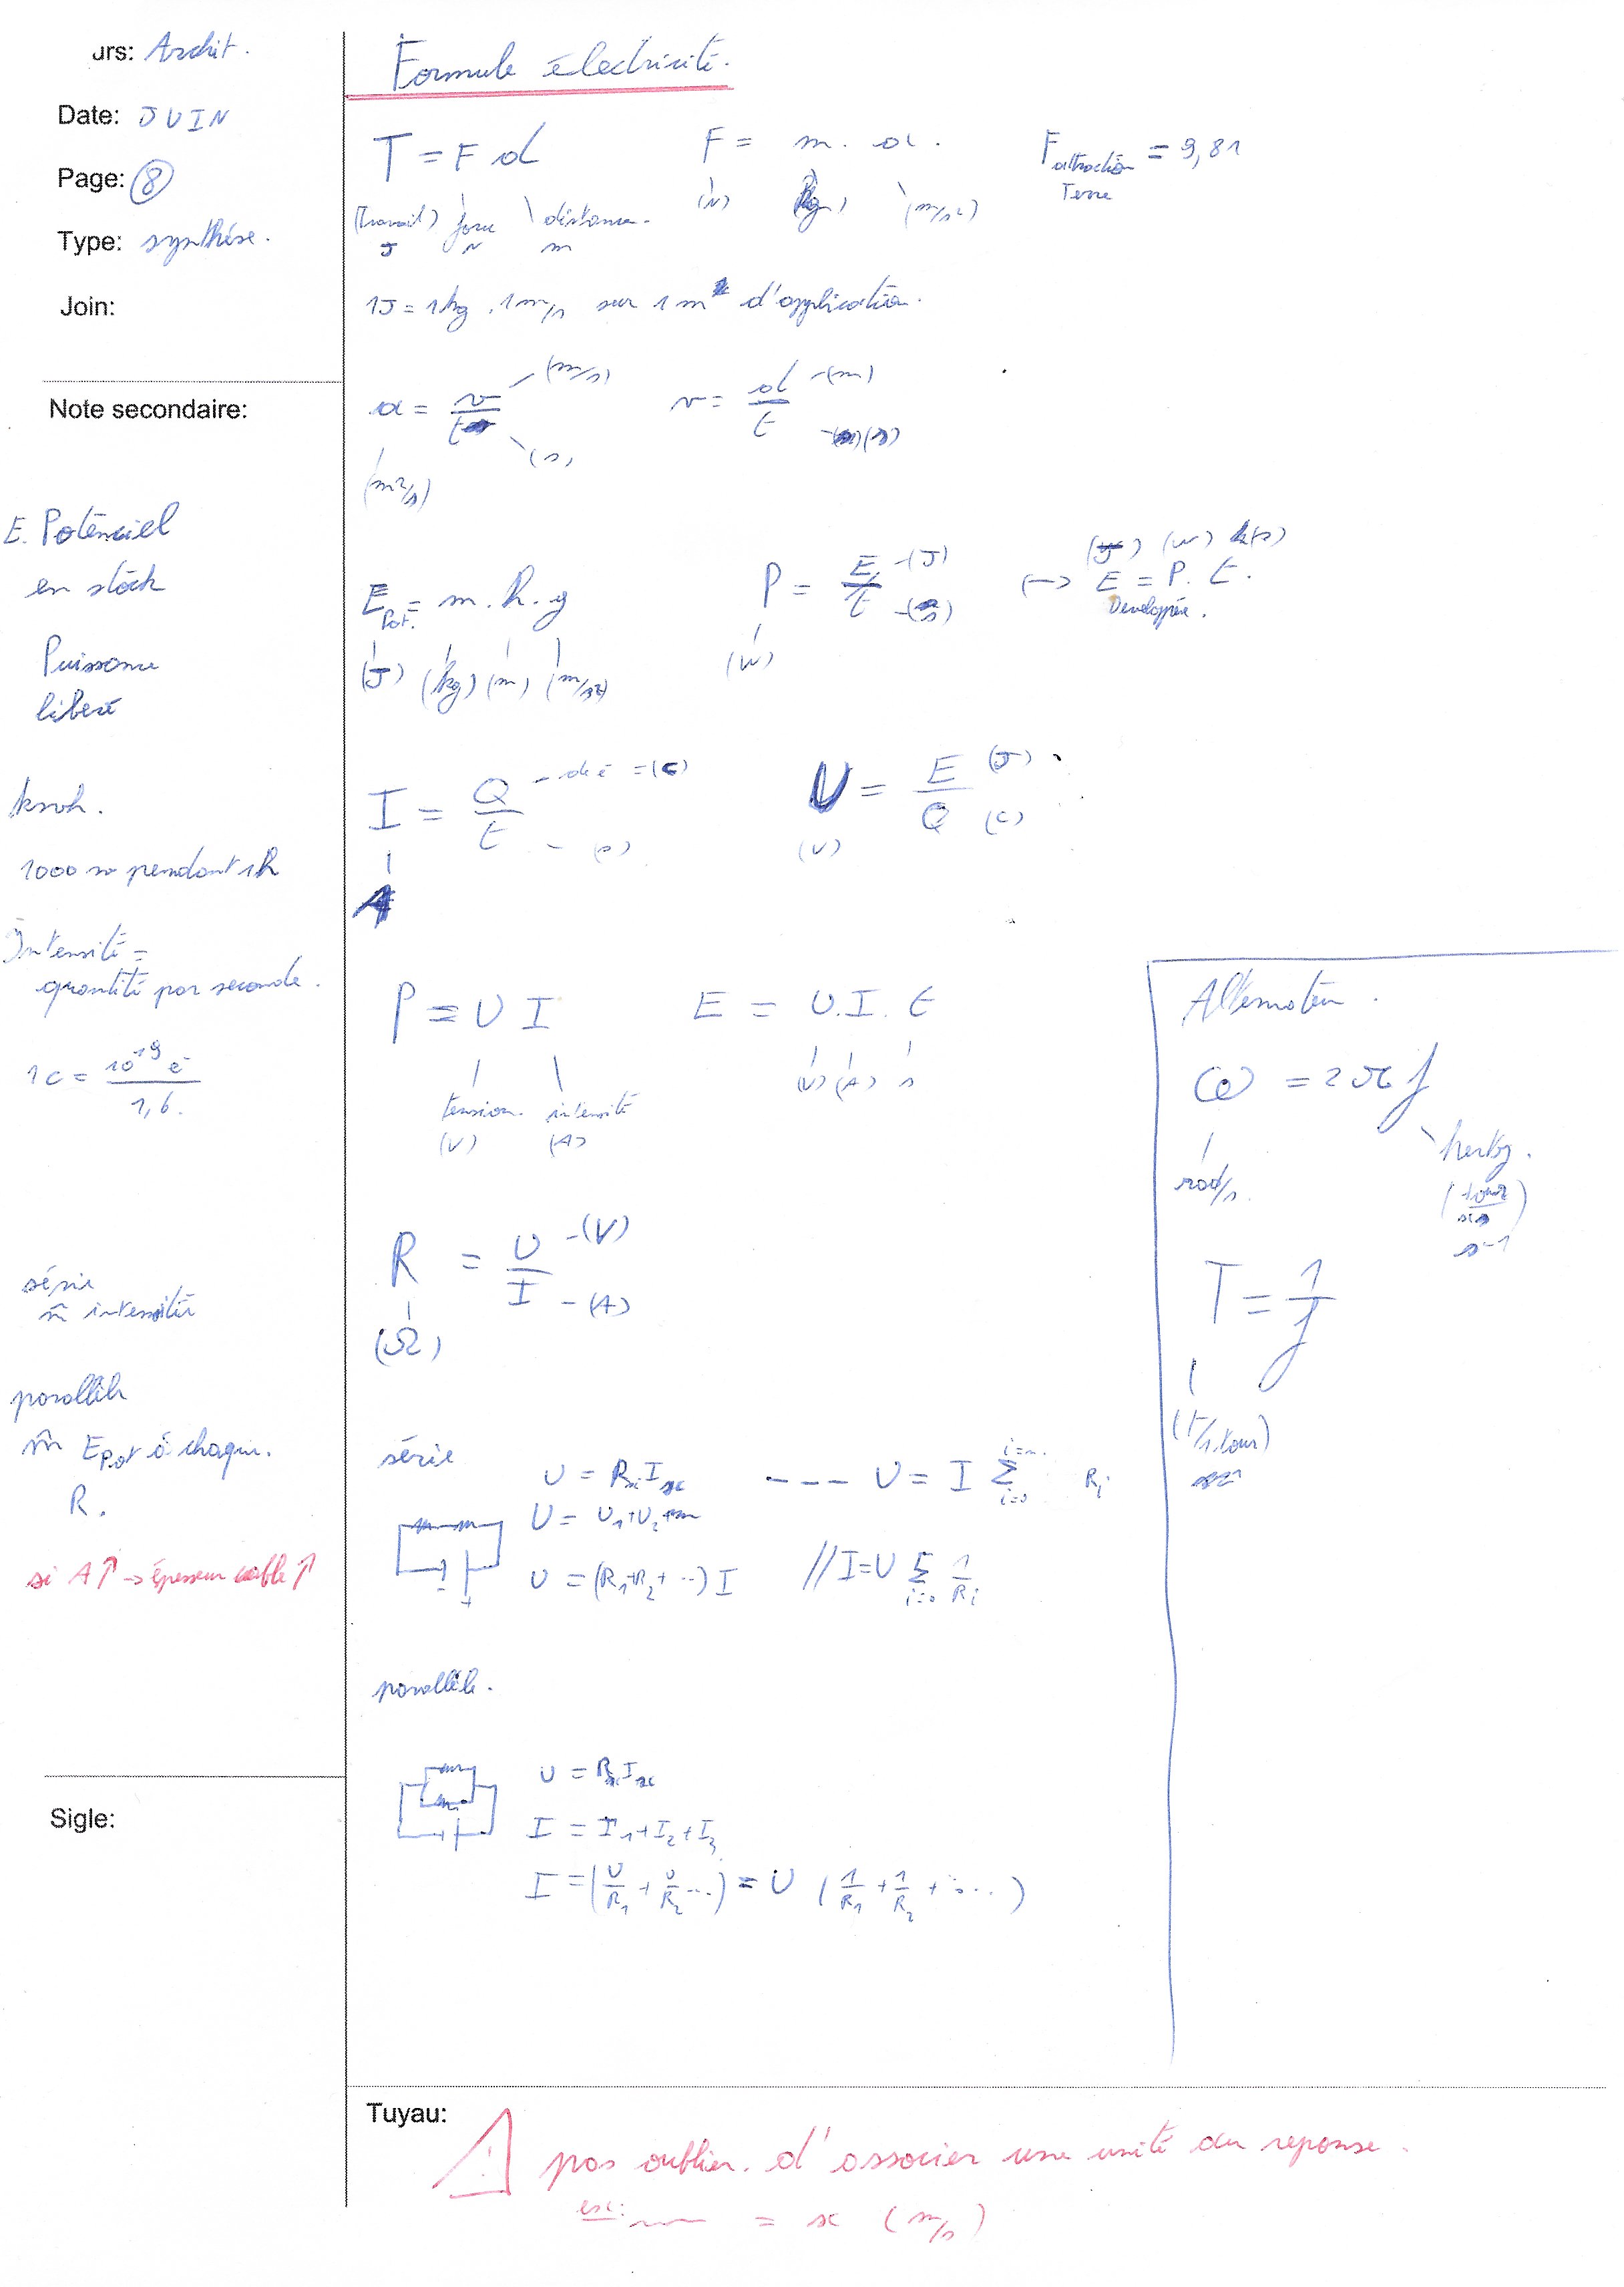 urs: Archit.
Date: JUIN
Page: 8
Type: synthèse.
Join:
Note secondaire:
E. Potenciel
en stock
Puissance
liberé
kwh.
1000 w pendant 1h
Intensité =
quantité par seconde.
1c = 10^19 e- / 1,6.
série
m̂ intensité
parallèle
m̂ E Pot à chaque
R.
si A↑ → épaisseur cable ↑
Sigle:
Formule électricité.
T = F d
(Travail) force distance
J N m
F = m . a.
(N) (kg) (m/s²)
F attraction Terre = 9,81
1J = 1kg . 1m/s sur 1 m d'application.
a = v/t
(m/s)
(s)
(m²/s)
v = d/t
(m)
(s)
E Pot. = m . h . g
(J) (kg) (m) (m/s²)
P = E/t
(J)
(s)
(W)
(J) (W) (s)
↔ E = P. t.
Developpée.
I = Q/t
- de é = (C)
- (s)
A
U = E/Q
(J)
(C)
(V)
P = U I
tension. intensité
(V) (A)
E = U.I. t
(V) (A) s
R = U/I
-(V)
-(A)
(Ω)
série
U = Rx Ix --- U = I Σ i=0 i=n Ri
U = U1+U2+
U = (R1+R2+ ...) I
// I=U Σ i=0 1/Ri
parallèle.
U = Rx Ix
I = I1+I2+I3
I = (U/R1 + U/R2 ...) = U (1/R1 + 1/R2 + ...)
Alternateur.
ω = 2πf
rad/s.
hertz.
(tour/s)
s-1
T = 1/f
(t/1 tour)
Tuyau:
! pas oublier. d'associer une unité au reponse.
ex: = x (m/s)